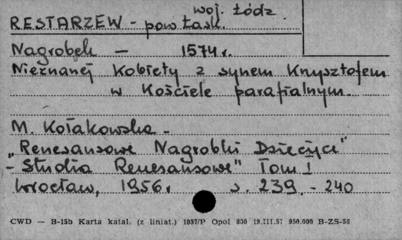 woj. Łódź.
RESTARZEW - pow Łask.
Nagrobek - 1574 r.
Nieznanej Kobiety z synem Krzysztofem
w Kościele parafialnym.
M. Kołakowska -
„Renesansowe Nagrobki Dziecięce"
- Studia Renesansowe" Tom I
Wrocław, 1956r. s. 239 - 240
CWD — B-15b Karta katal. (z liniat.) 1037/P Opol 830 19.III.57 950.000 B-ZS-56